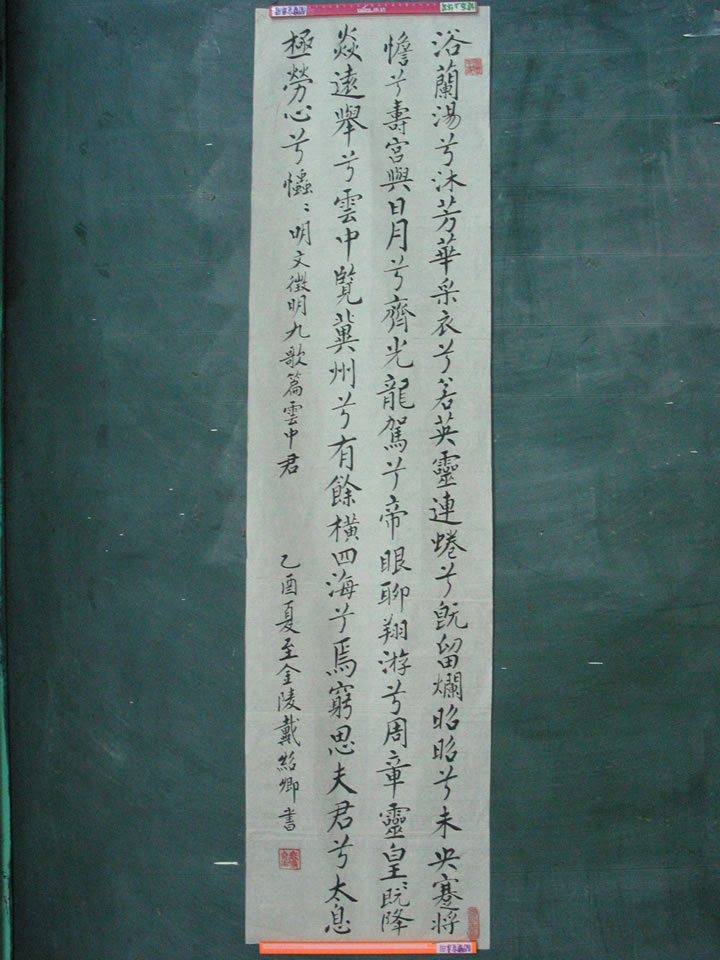 浴蘭湯兮沐芳華采衣兮若英靈連蜷兮既留爛昭昭兮未央蹇將
憺兮壽宮與日月兮齊光龍駕兮帝眼聊翔游兮周章靈皇皇既降
焱遠舉兮雲中覽冀州兮有餘橫四海兮焉窮思夫君兮太息
極勞心兮忡忡明文徵明九歌篇雲中君
乙酉夏至金陵戴紹卿書